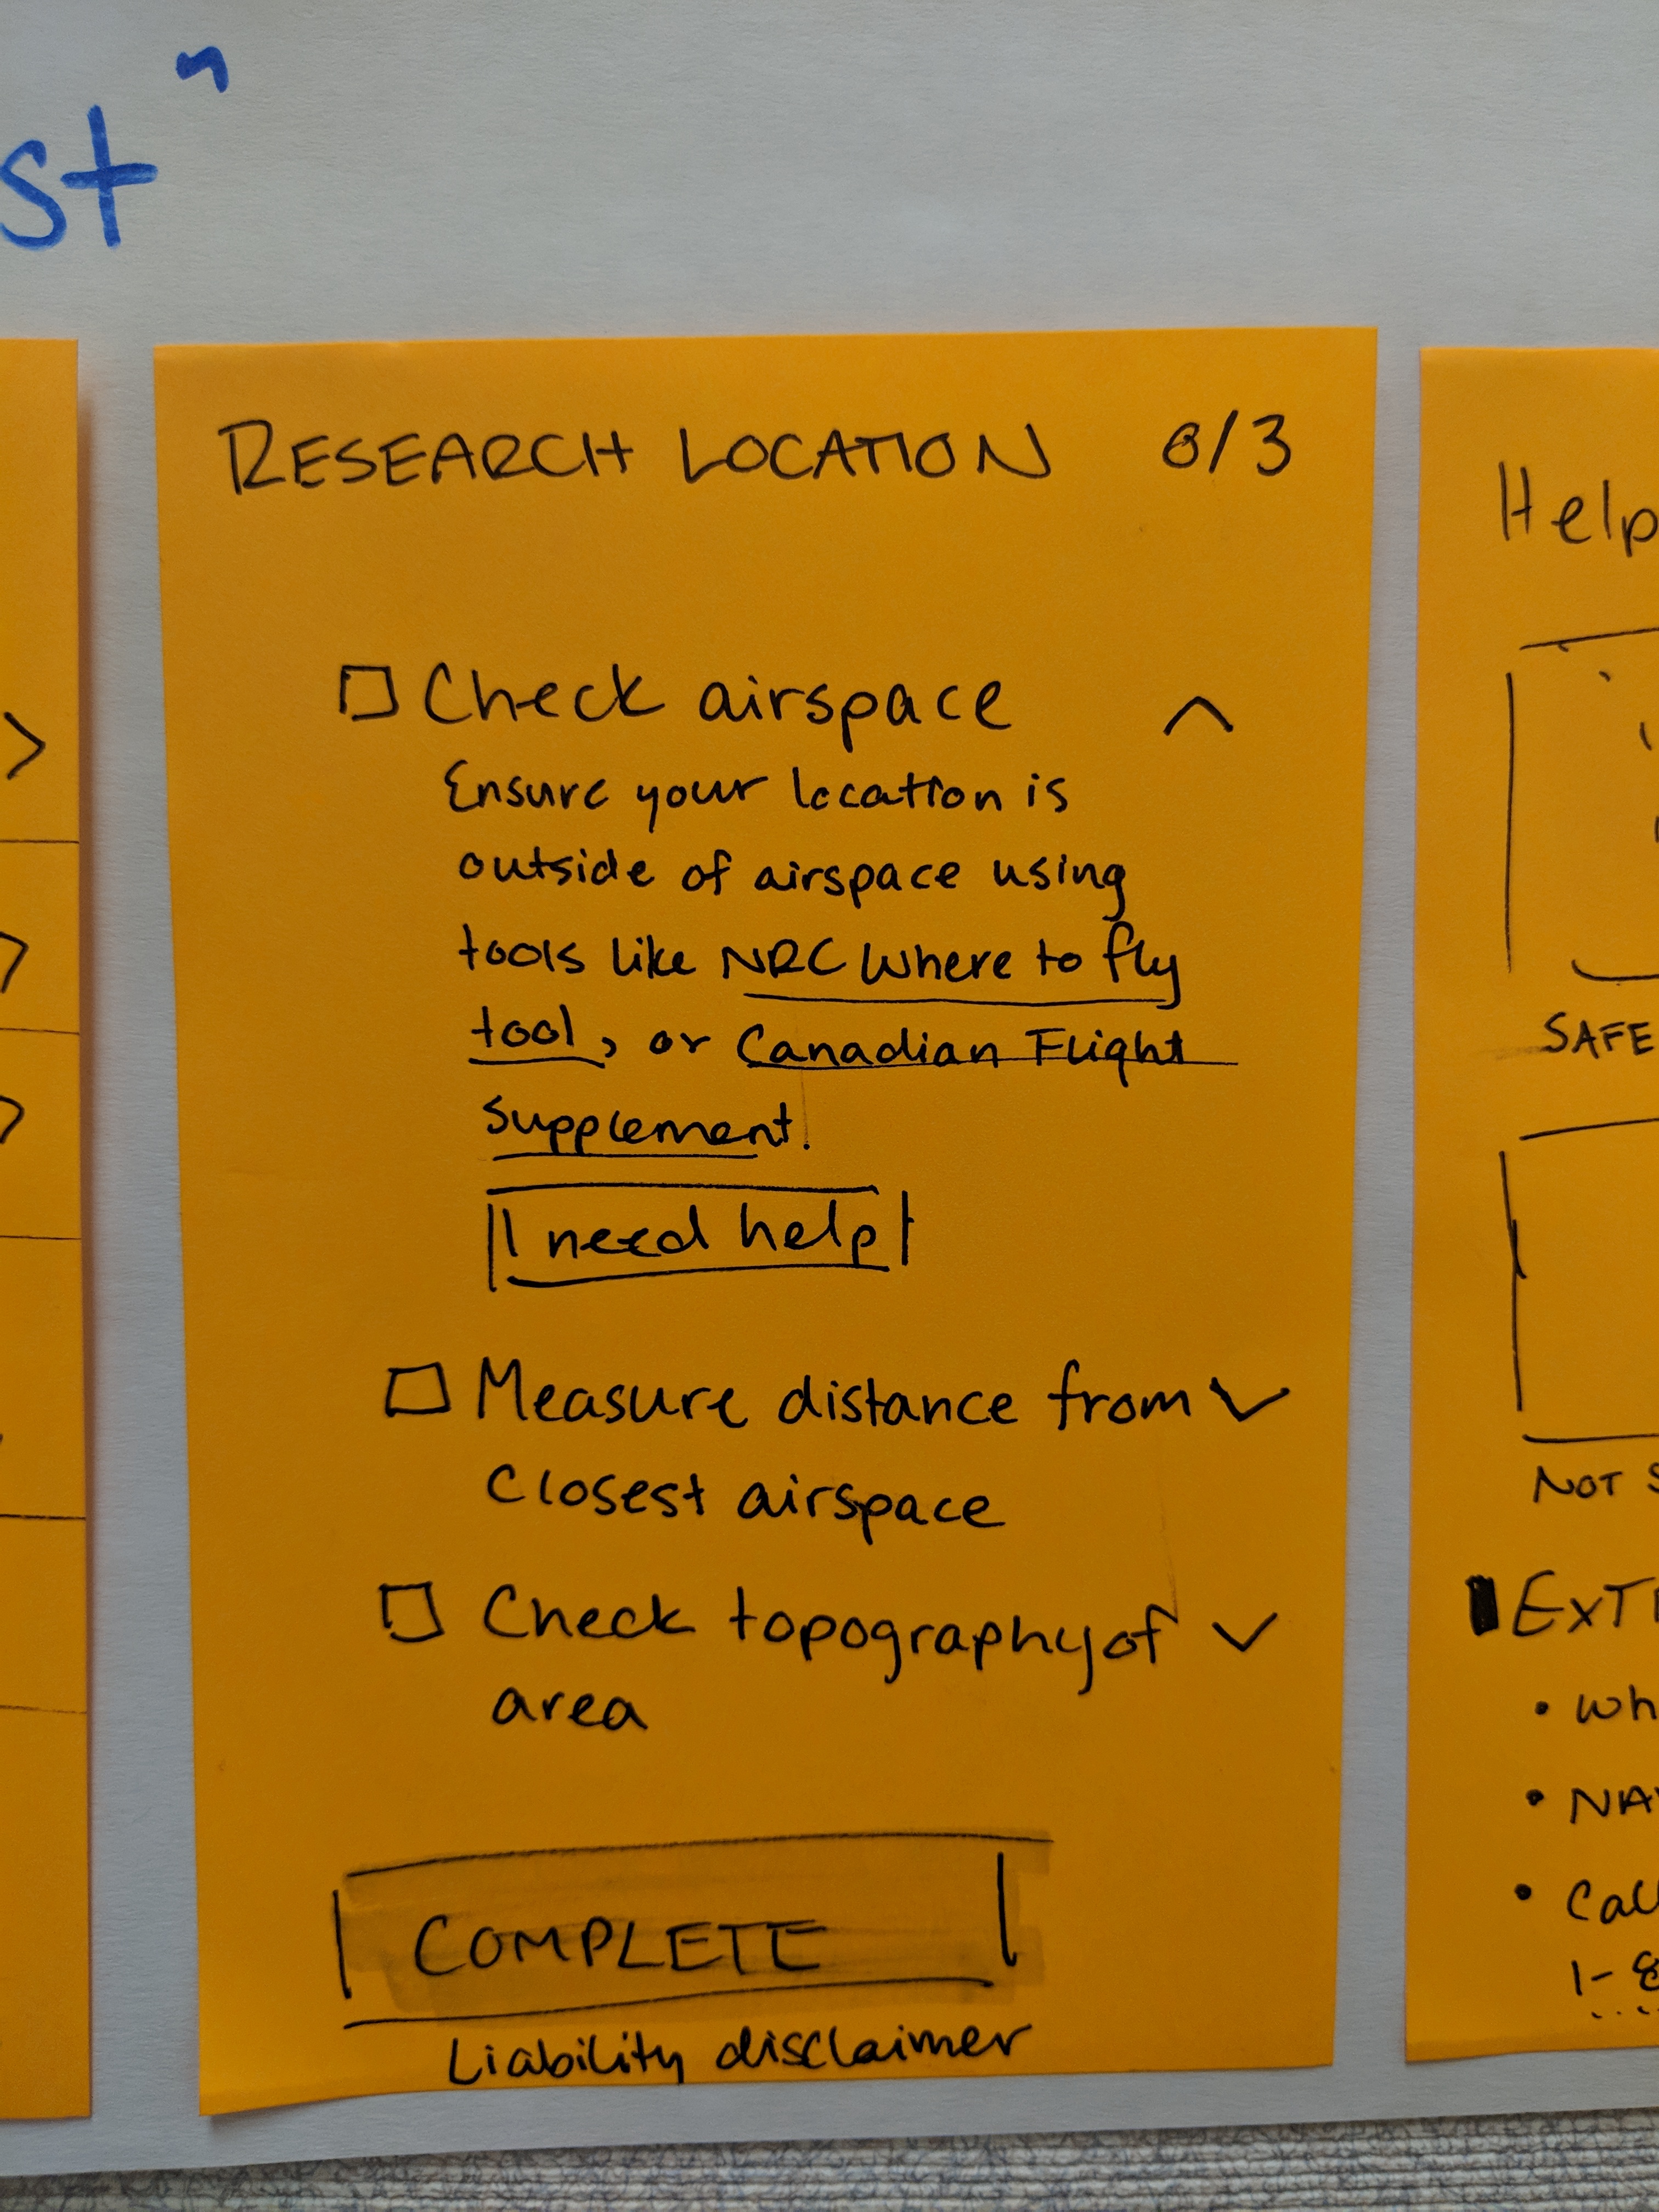 st"
RESEARCH LOCATION 0/3
Check airspace
Ensure your location is
outside of airspace using
tools like NRC Where to fly
tool, or Canadian Flight
Supplement.
I need help
Measure distance from
closest airspace
Check topography of
area
COMPLETE
Liability disclaimer
Help
SAFE
NOT S
EXT
• Wh
• NAV
• Call
1-8